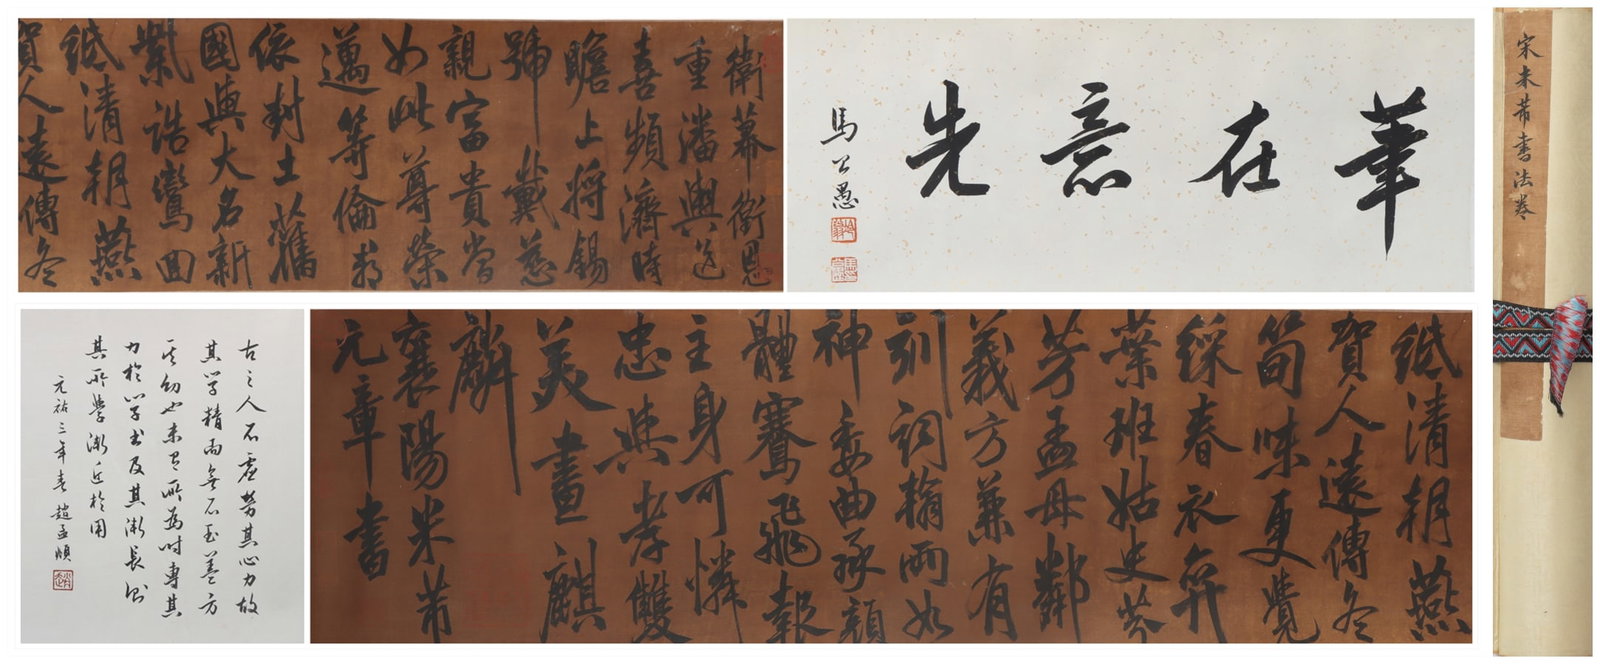 衛幕銜恩
重潘輿送
喜頻濟時
瞻上將錫
號戴慈
親富貴當
如此尊榮
邁等倫郡
依封土舊
國與大名新
紫誥鸞回
紙清朝燕
賀人遠傳冬
筆在意先
馬公愚
宋米芾書法卷
紙清朝燕
賀人遠傳冬
筍味更覺
綵春衣弈
葉班姑史芬
芳孟母鄰
義方兼有
訓詞翰兩如
神委曲承顏
體騫飛報
主身可憐
忠與孝雙
美畫麒
麟
襄陽米芾
元章書
古之人不虛勞其心力故
其學精而無不至蓋方
其幼也未有所為時專其
力於學書及其漸長則
其所學漸近於用
元祐三年春趙孟頫